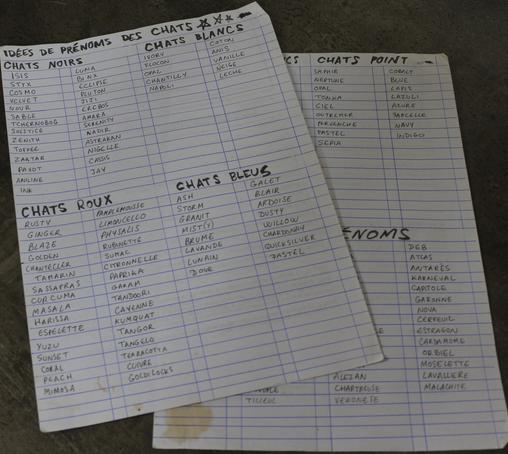 IDÉES DE PRÉNOMS DES CHATS
CHATS NOIRS
ISIS
STYX
COSMO
VELVET
NOUR
SABLE
TCHERNOBOG
SOLSTICE
ZENITH
TOFFEE
ZAATAR
PAVOT
ANILINE
INK
LUNA
BINX
ECLIPSE
PLUTON
JIJI
EREBOS
AMARA
SERENITY
NADIR
ASTRAKAN
NIGELLE
CASSIS
JAY
CHATS BLANCS
IVORY
FLOCON
OPAL
CHANTILLY
NAPOLI
COTON
ANIS
VANILLE
NEIGE
LECHE
CHATS ROUX
RUSTY
GINGER
BLAZE
GOLDEN
CHANTECLER
TAMARIN
SASSAFRAS
CURCUMA
MASALA
HARISSA
ESPELETTE
YUZU
SUNSET
CORAL
PEACH
MIMOSA
PAMPLEMOUSSE
LIMONCELLO
PHYSALIS
RUBINETTE
SUMAC
CITRONNELLE
PAPRIKA
GARAM
TANDOORI
CAYENNE
KUMQUAT
TANGOR
TANGELO
TERRACOTTA
CUIVRE
GOLDILOCKS
CHATS BLEUS
ASH
STORM
GRANIT
MIST(Y)
BRUME
LAVANDE
LUNAIN
DOVE
GALET
BLAIR
ARDOISE
DUSTY
WILLOW
CHARDONAY
QUICKSILVER
PASTEL
CHATS POINT
SAPHIR
NEPTUNE
OPAL
TONKA
CIEL
OUTREMER
PERVENCHE
PASTEL
SEPIA
COBALT
BLUE
LAPIS
LAZULI
AZURE
SARCELLE
NAVY
INDIGO
ÉNOMS
DEB
ATLAS
ANTARÈS
KARNEVAL
CAPITOLE
GARONNE
NOVA
CERFEUIL
ESTRAGON
CARDAMOME
ORBIEL
MOSELETTE
LAVALIERE
MALACHITE
ALEZAN
CHARTREUSE
VERONESE
TILLEUL